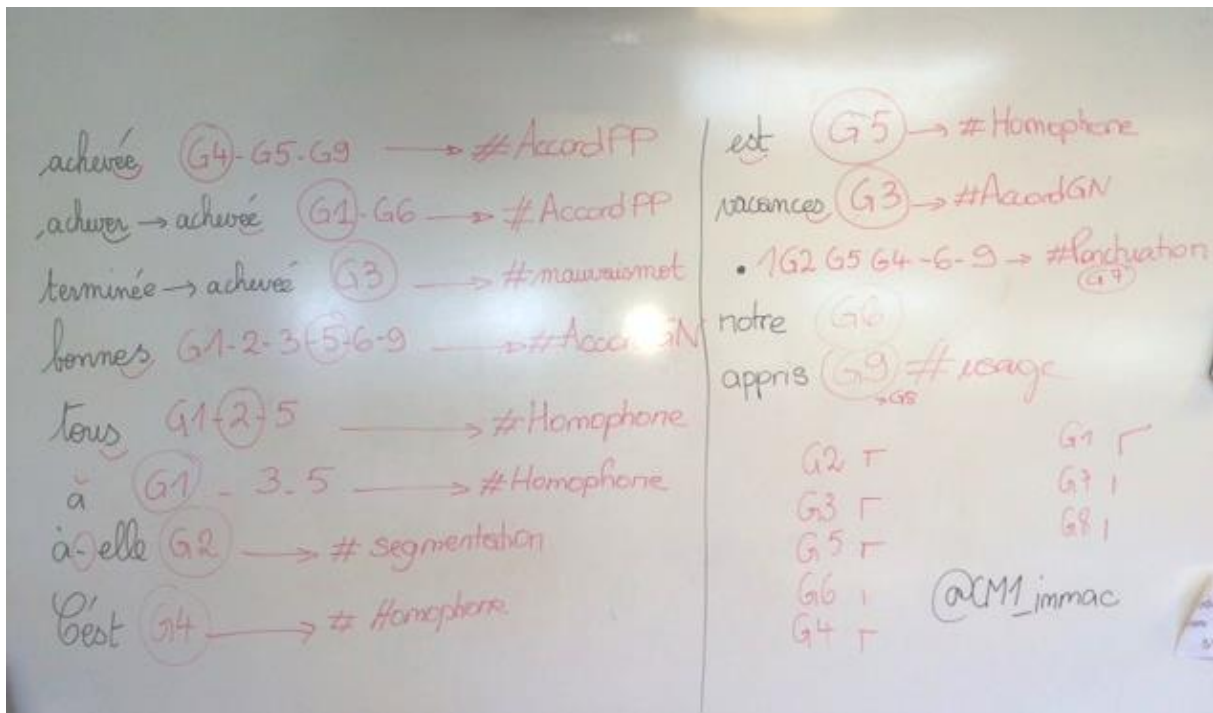 achevée G4-G5-G9 → #AccordPP
achever → achevée G1-G6 → #AccordPP
terminée → achevée G3 → #mauvaismot
bonnes G1-2-3-5-6-9 → #Accord GN
tous G1-2-5 → #Homophone
à G1 - 3-5 → #Homophone
à-elle G2 → #segmentation
C'est G4 → #Homophone
est G5 → #Homophone
vacances G3 → #AccordGN
. 1G2 G5 G4-6-9 → #Ponctuation
G7
notre G6
appris G9 #usage
→G8
G2
G3
G5
G6
G4
G1
G7
G8
@CM1_immac